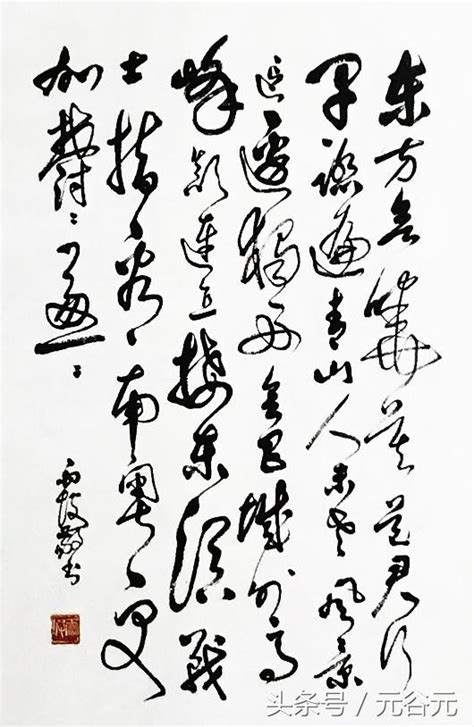 东方欲曉莫道君行
早踏遍青山人未老风景
这邊独好會昌城外高
峰颠连直接东溟战
士指看南粤更
加郁郁葱葱
书
头条号 / 元谷元